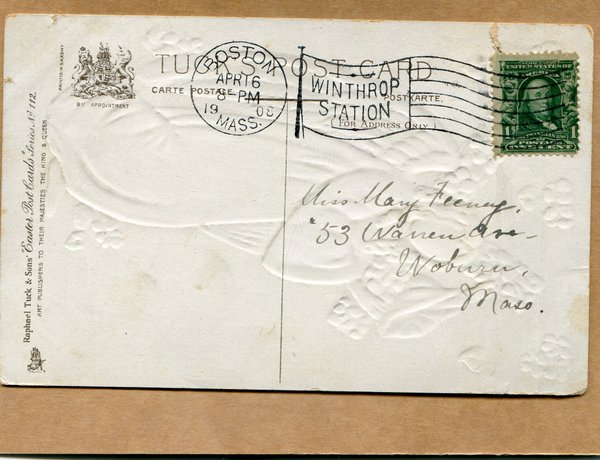 PRINTED IN SAXONY
BY APPOINTMENT
TUCK'S POST CARD
CARTE POSTALE
POSTKARTE.
(FOR ADDRESS ONLY.)
BOSTON
APR 16
8 PM
19 08
MASS.
WINTHROP
STATION
1 1
POSTAGE
Miss Mary Feeney,
53 Warren Ave-
Woburn,
Mass.
Raphael Tuck & Sons' "Easter Post Cards" Series No 112.
ART PUBLISHERS TO THEIR MAJESTIES THE KING & QUEEN